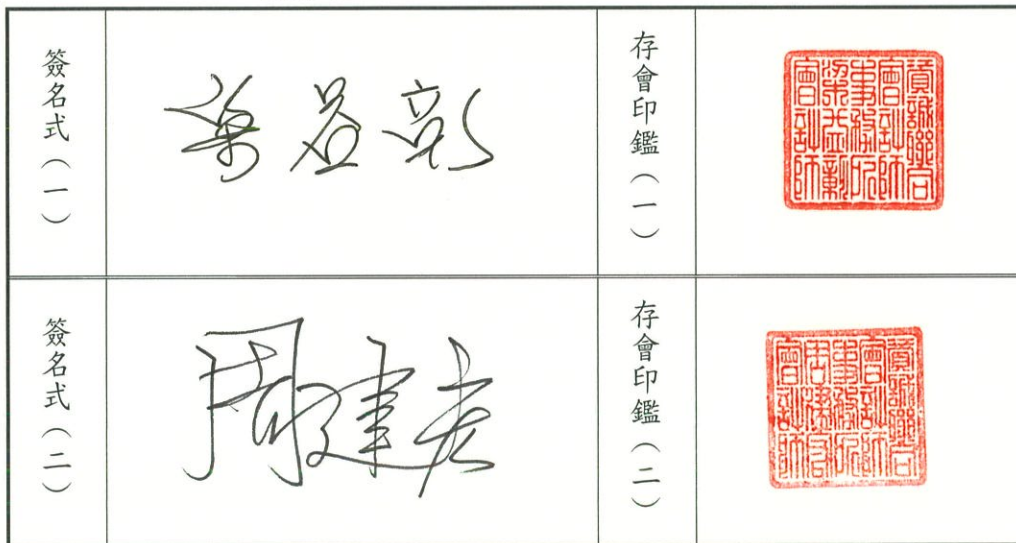 簽名式（一）
梁益彰
存會印鑑（一）
資誠聯合
會計師
事務所
梁益彰
會計師
簽名式（二）
周建宏
存會印鑑（二）
資誠聯合
會計師
事務所
周建宏
會計師